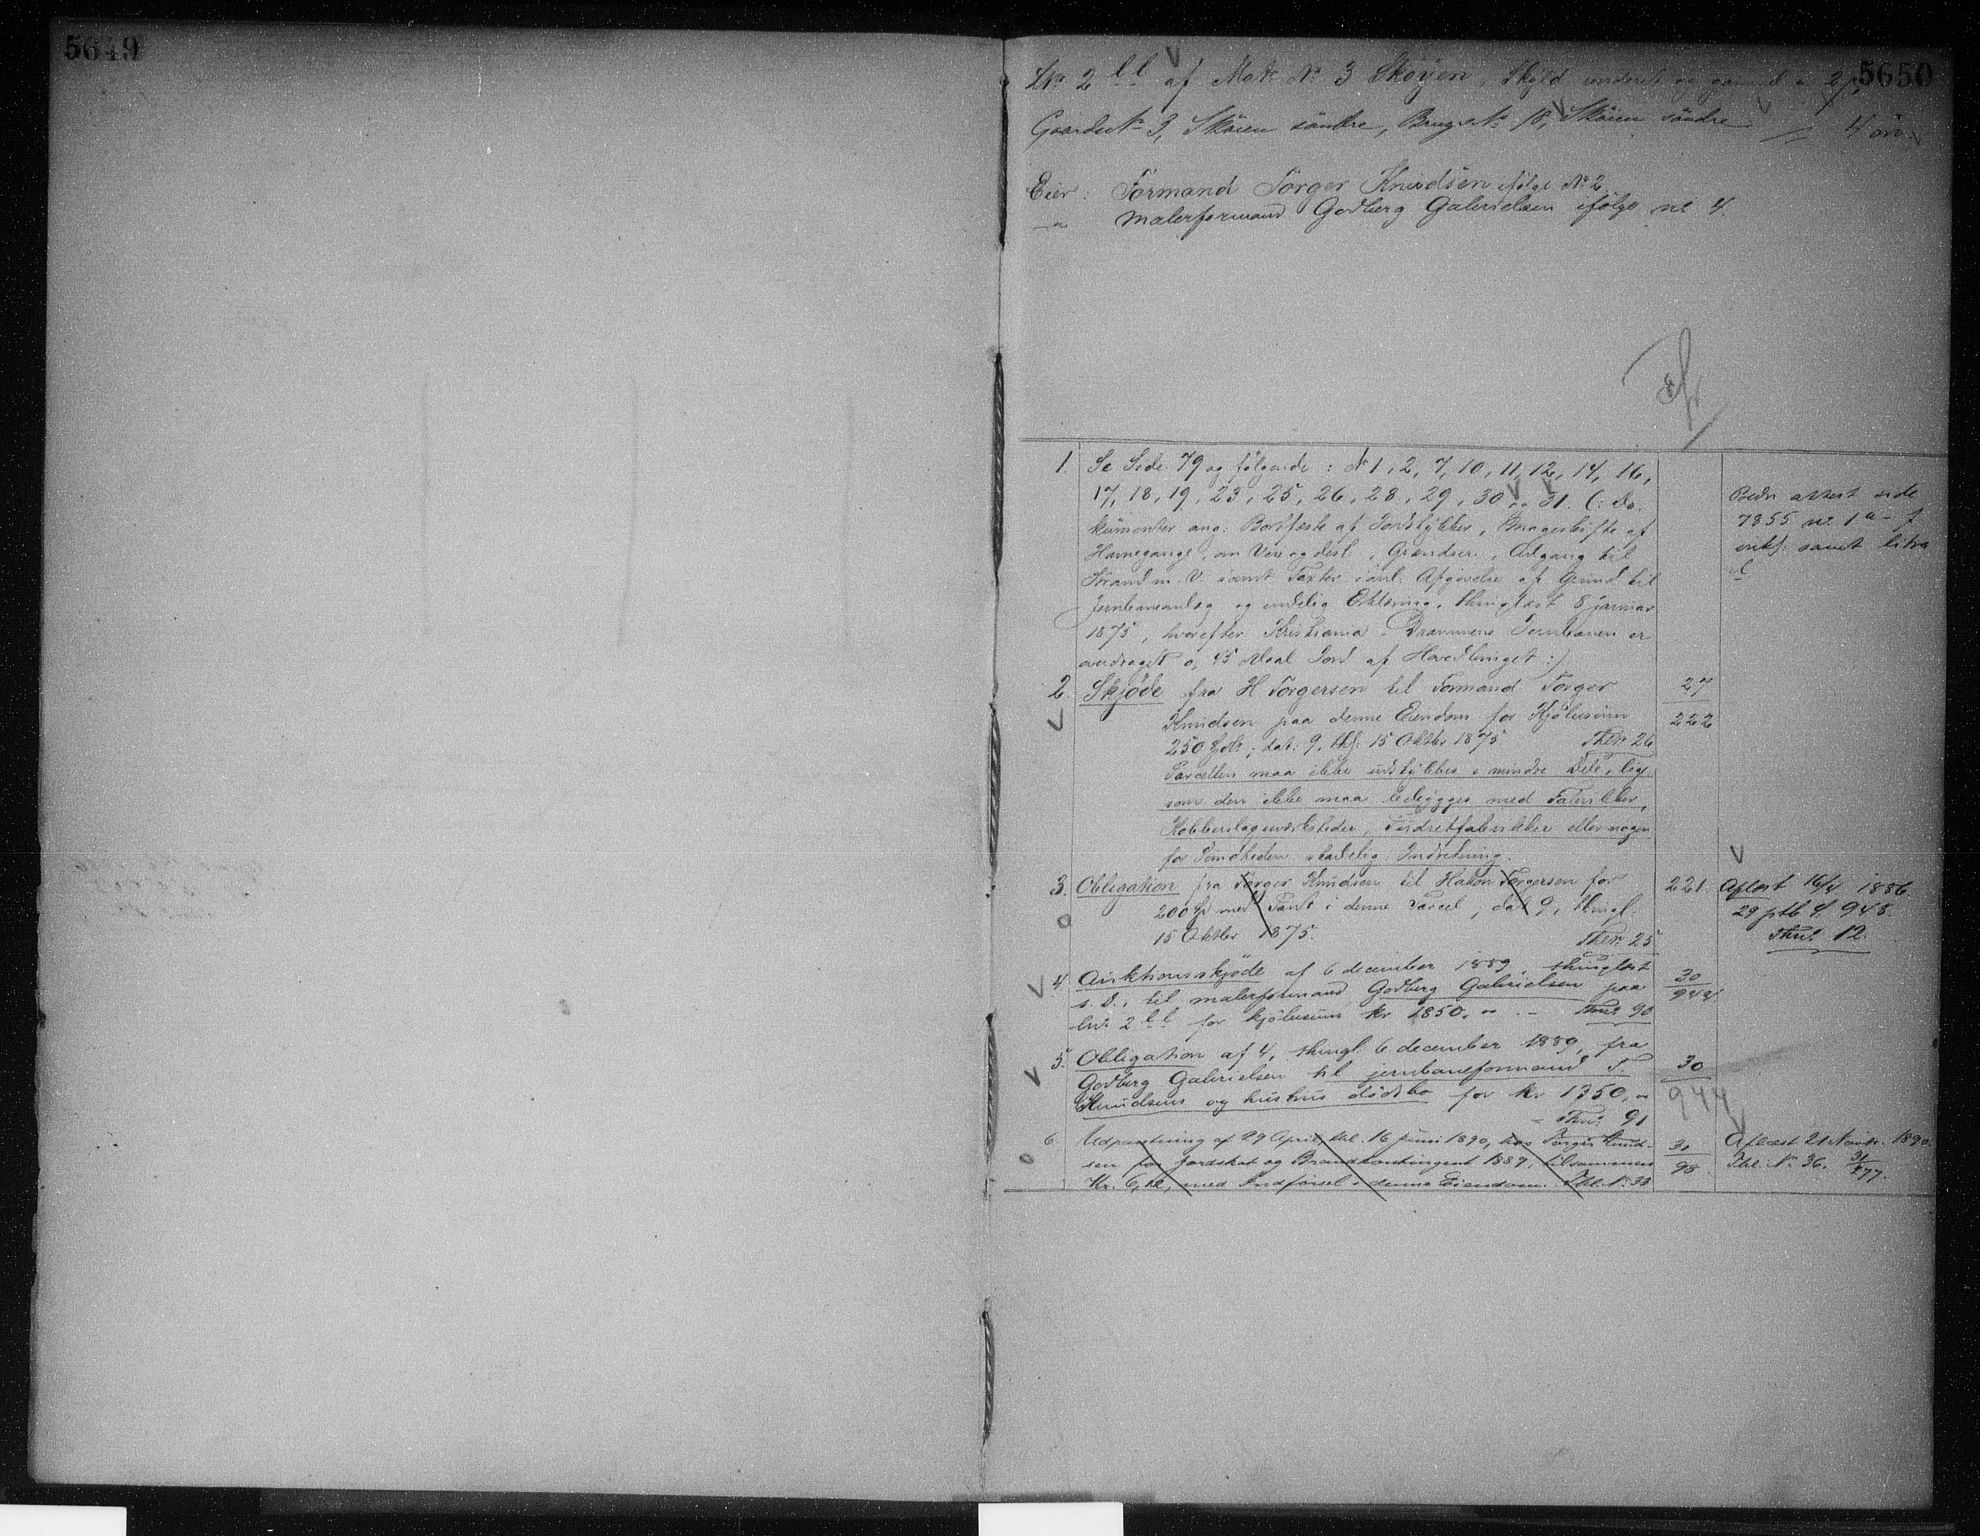 5649
5650
LNo 2 ll af Matr No 3 Skøyen, Skyld
Gaards No 3, Skøien søndre, Brugs No 18, Skøien søndre 4 øre
Eier: Formand Torger Knudsen ifølge No 2
" malerformand Godberg Gabrielsen ifølge no 4.
cfr
1. Se Side 79 og følgende: No 1, 2, 7, 10, 11, 12, 14, 16,
17, 18, 19, 23, 25, 26, 28, 29, 30 og 31. (: Do-
kumenter ang: Bortfæste af Jordstykker, Mageskifte af
Havnegange, om Veie og desl., Grændser, Adgang til
Strand m. V. samt Taxter i anl: Afgivelse af Grund til
Jernbaneanlæg og endelig Erklæring, thinglæst 8 januar
1875, hvorefter Kristiania-Drammens Jernbanen er
overdraget 0,45 Maal Jord af Hovedbruget :)
Bedr attest side
7855 no 1 a-f
inkl. samt litra
2. Skjøde fra H Torgersen til Formand Torger
Knudsen paa denne Eiendom for Kjøbesum
250 Spdr; dat: 9, thl: 15 Oktbr 1875. Thno 26
Parcellen maa ikke udstykkes i mindre Dele, lige-
som den ikke maa bebygges med Fabrikker,
Kobberslagerværksteder, Pudretfabrikker eller nogen
for Sundheden skadelig Indretning.
27
222
3. Obligation fra Torger Knudsen til Hakon Torgersen for
200 Sp med Pant i denne Parcel; dat 9, thingl:
15 Oktbr 1875. Thno 25
221.
Aflæst 16/4 1886.
29 ptb f. 948.
Thno 12.
4. Auktionsskjøde af 6 december 1889 thinglæst
s. D., til malerformand Godberg Gabrielsen paa
lno 2 ll for kjøbesum kr 1850, " .- Thno 90
30
944.
5. Obligation af 4, thingl. 6 december 1889, fra
Godberg Gabrielsen til jernbaneformand T.
Knudsens og hustrus dødsbo for kr 1350, "
- Thno 91
30
944
6. Udpantning af 29 April, thl. 16 Juni 1890, hos Torger Knud-
sen for Jordskat og Brandkontingent 1889, tilsammen
Kr. 6, med Indførsel i denne Eiendom. Thl. No 33
31
98
Aflæst 21 Novbr. 1890.
Thl. No 36. 31
877.